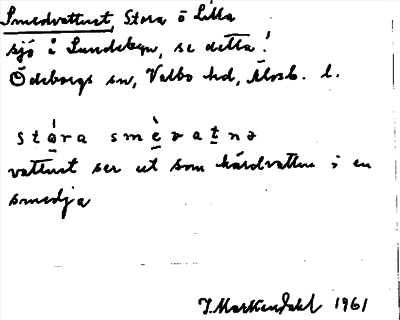 Smedvattnet, Stora o Lilla
sjö i Sundsbyn, se detta!
Ödeborgs sn, Valbo hd, Älvsb. l.
stóra smèvatnə
vattnet ser ut som härdvatten i en
smedja
J. Markendahl 1961